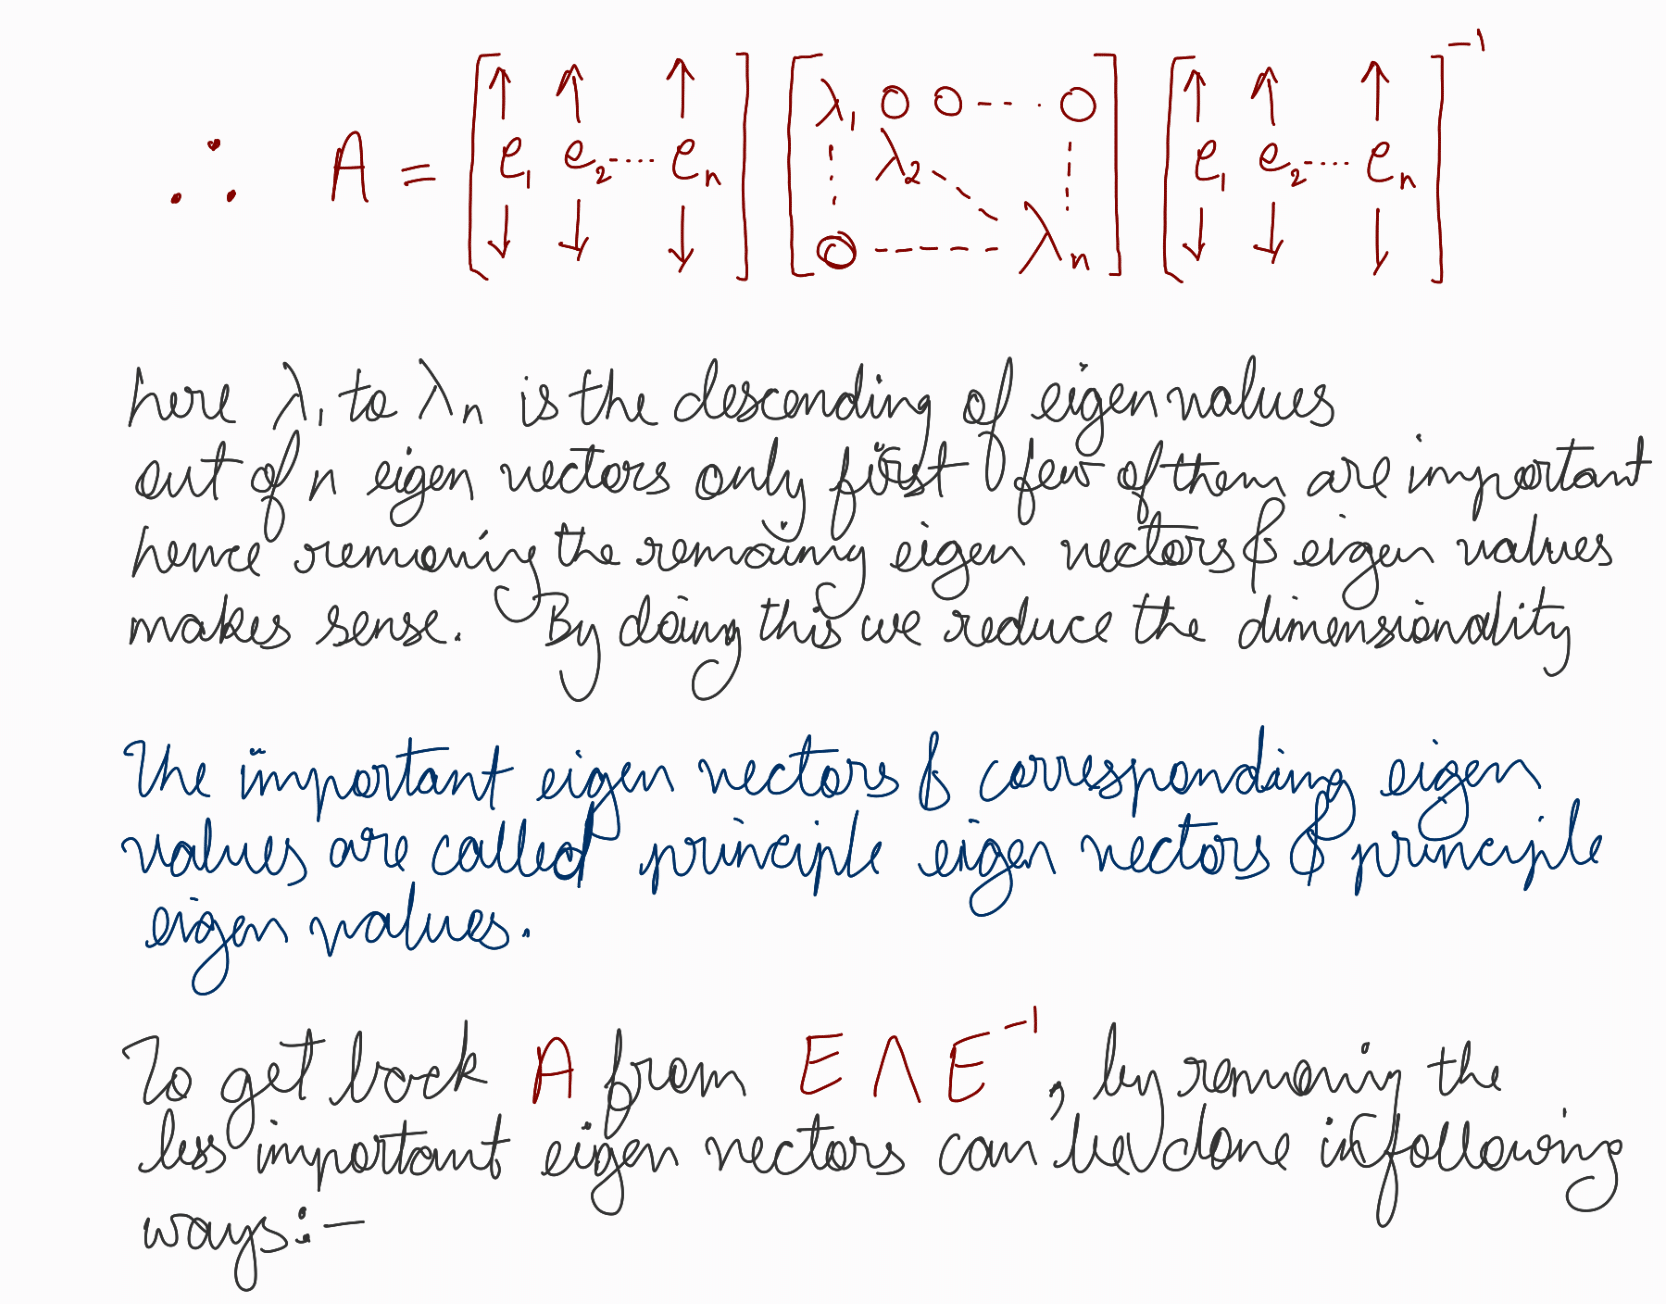 ∴ A = [e₁ e₂ ---- eₙ] [λ₁ 0 0 --- 0 λ₂ 0 ------ λₙ] [e₁ e₂ ---- eₙ]⁻¹
here λ₁ to λₙ is the descending of eigen values
out of n eigen vectors only first few of them are important
hence removing the remaining eigen vectors & eigen values
makes sense. By doing this we reduce the dimensionality
The important eigen vectors & corresponding eigen
values are called principle eigen vectors & principle
eigen values.
To get back A from E Λ E⁻¹, by removing the
less important eigen vectors can be done in following
ways:-